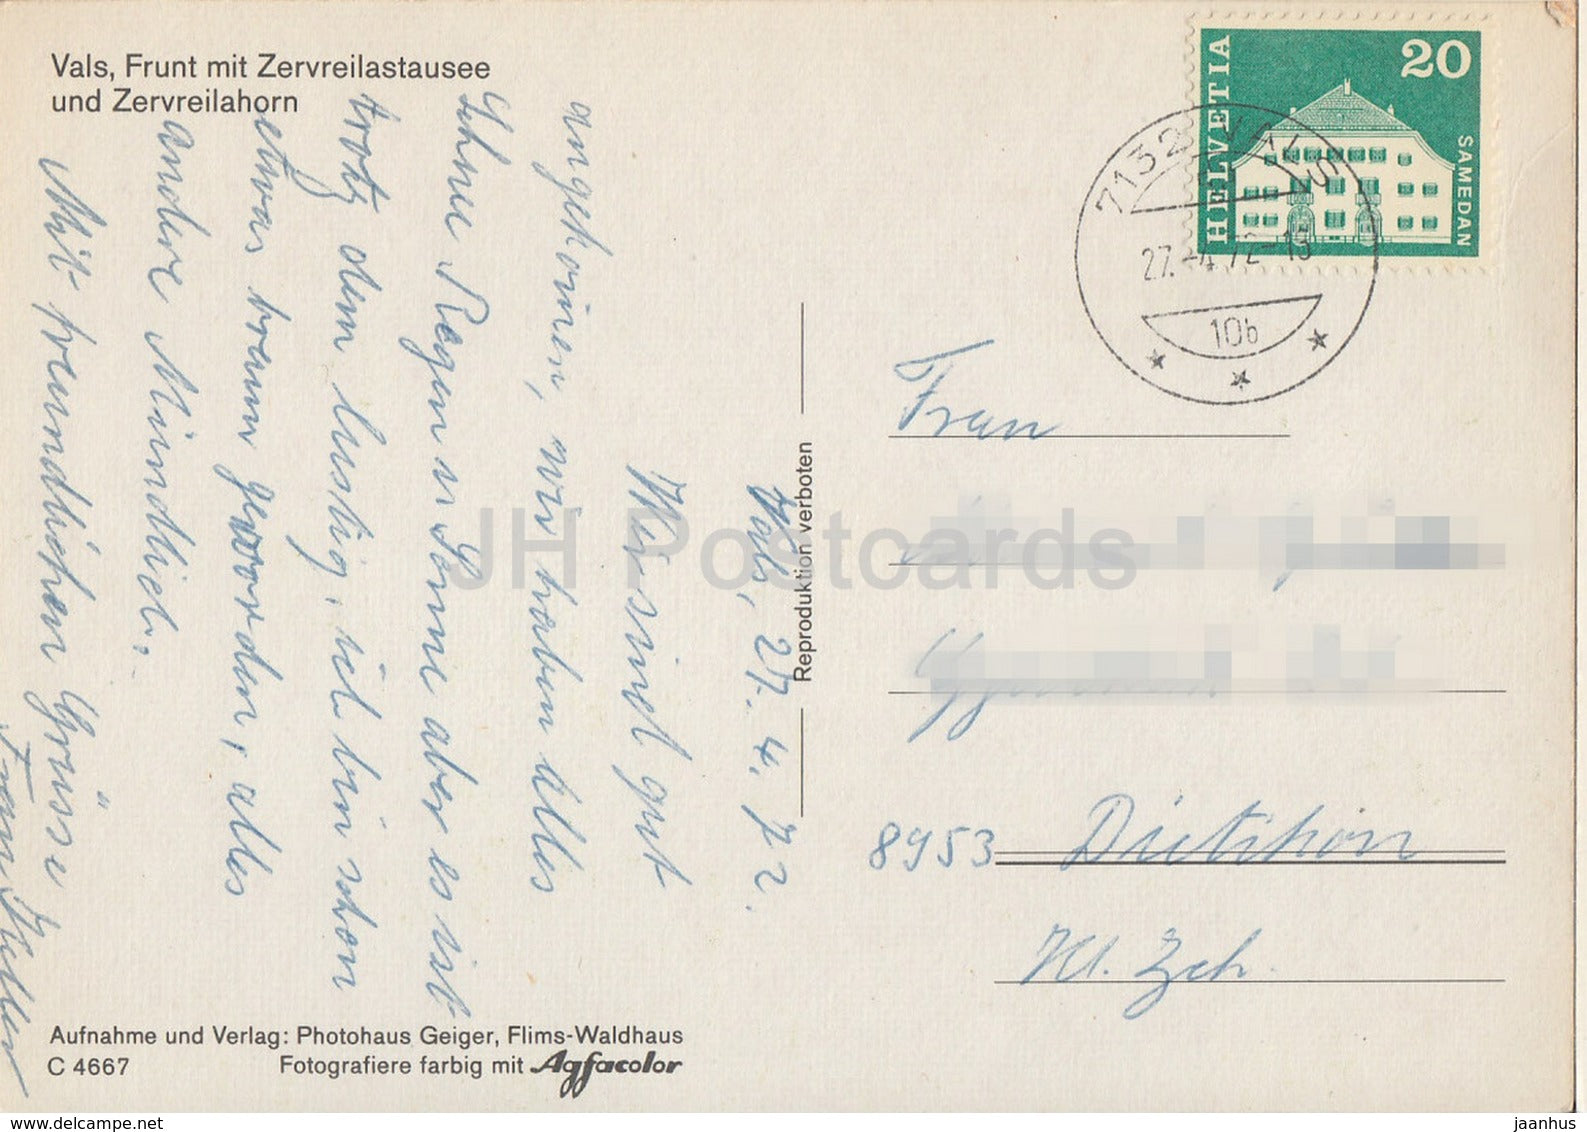 Vals, Frunt mit Zervreilastausee
und Zervreilahorn
Vals, 27. 4. 72.
Wir sind gut
angekommen, wir haben alles
Schnee Regen u Sonne aber es ist
trotz dem lustig, ich bin schon
etwas braun geworden, alles
andere Mündlich.
Mit freundlichen Grüsse
Frau Keller
Aufnahme und Verlag: Photohaus Geiger, Flims-Waldhaus
C 4667 Fotografiere farbig mit Agfacolor
Reproduktion verboten
HELVETIA
20
SAMEDAN
7132 VALS
27.-4.72-13
10b
Frau
8953 Dietikon
Kt. Zch.
JH Postcards
www.delcampe.net
jaanhus